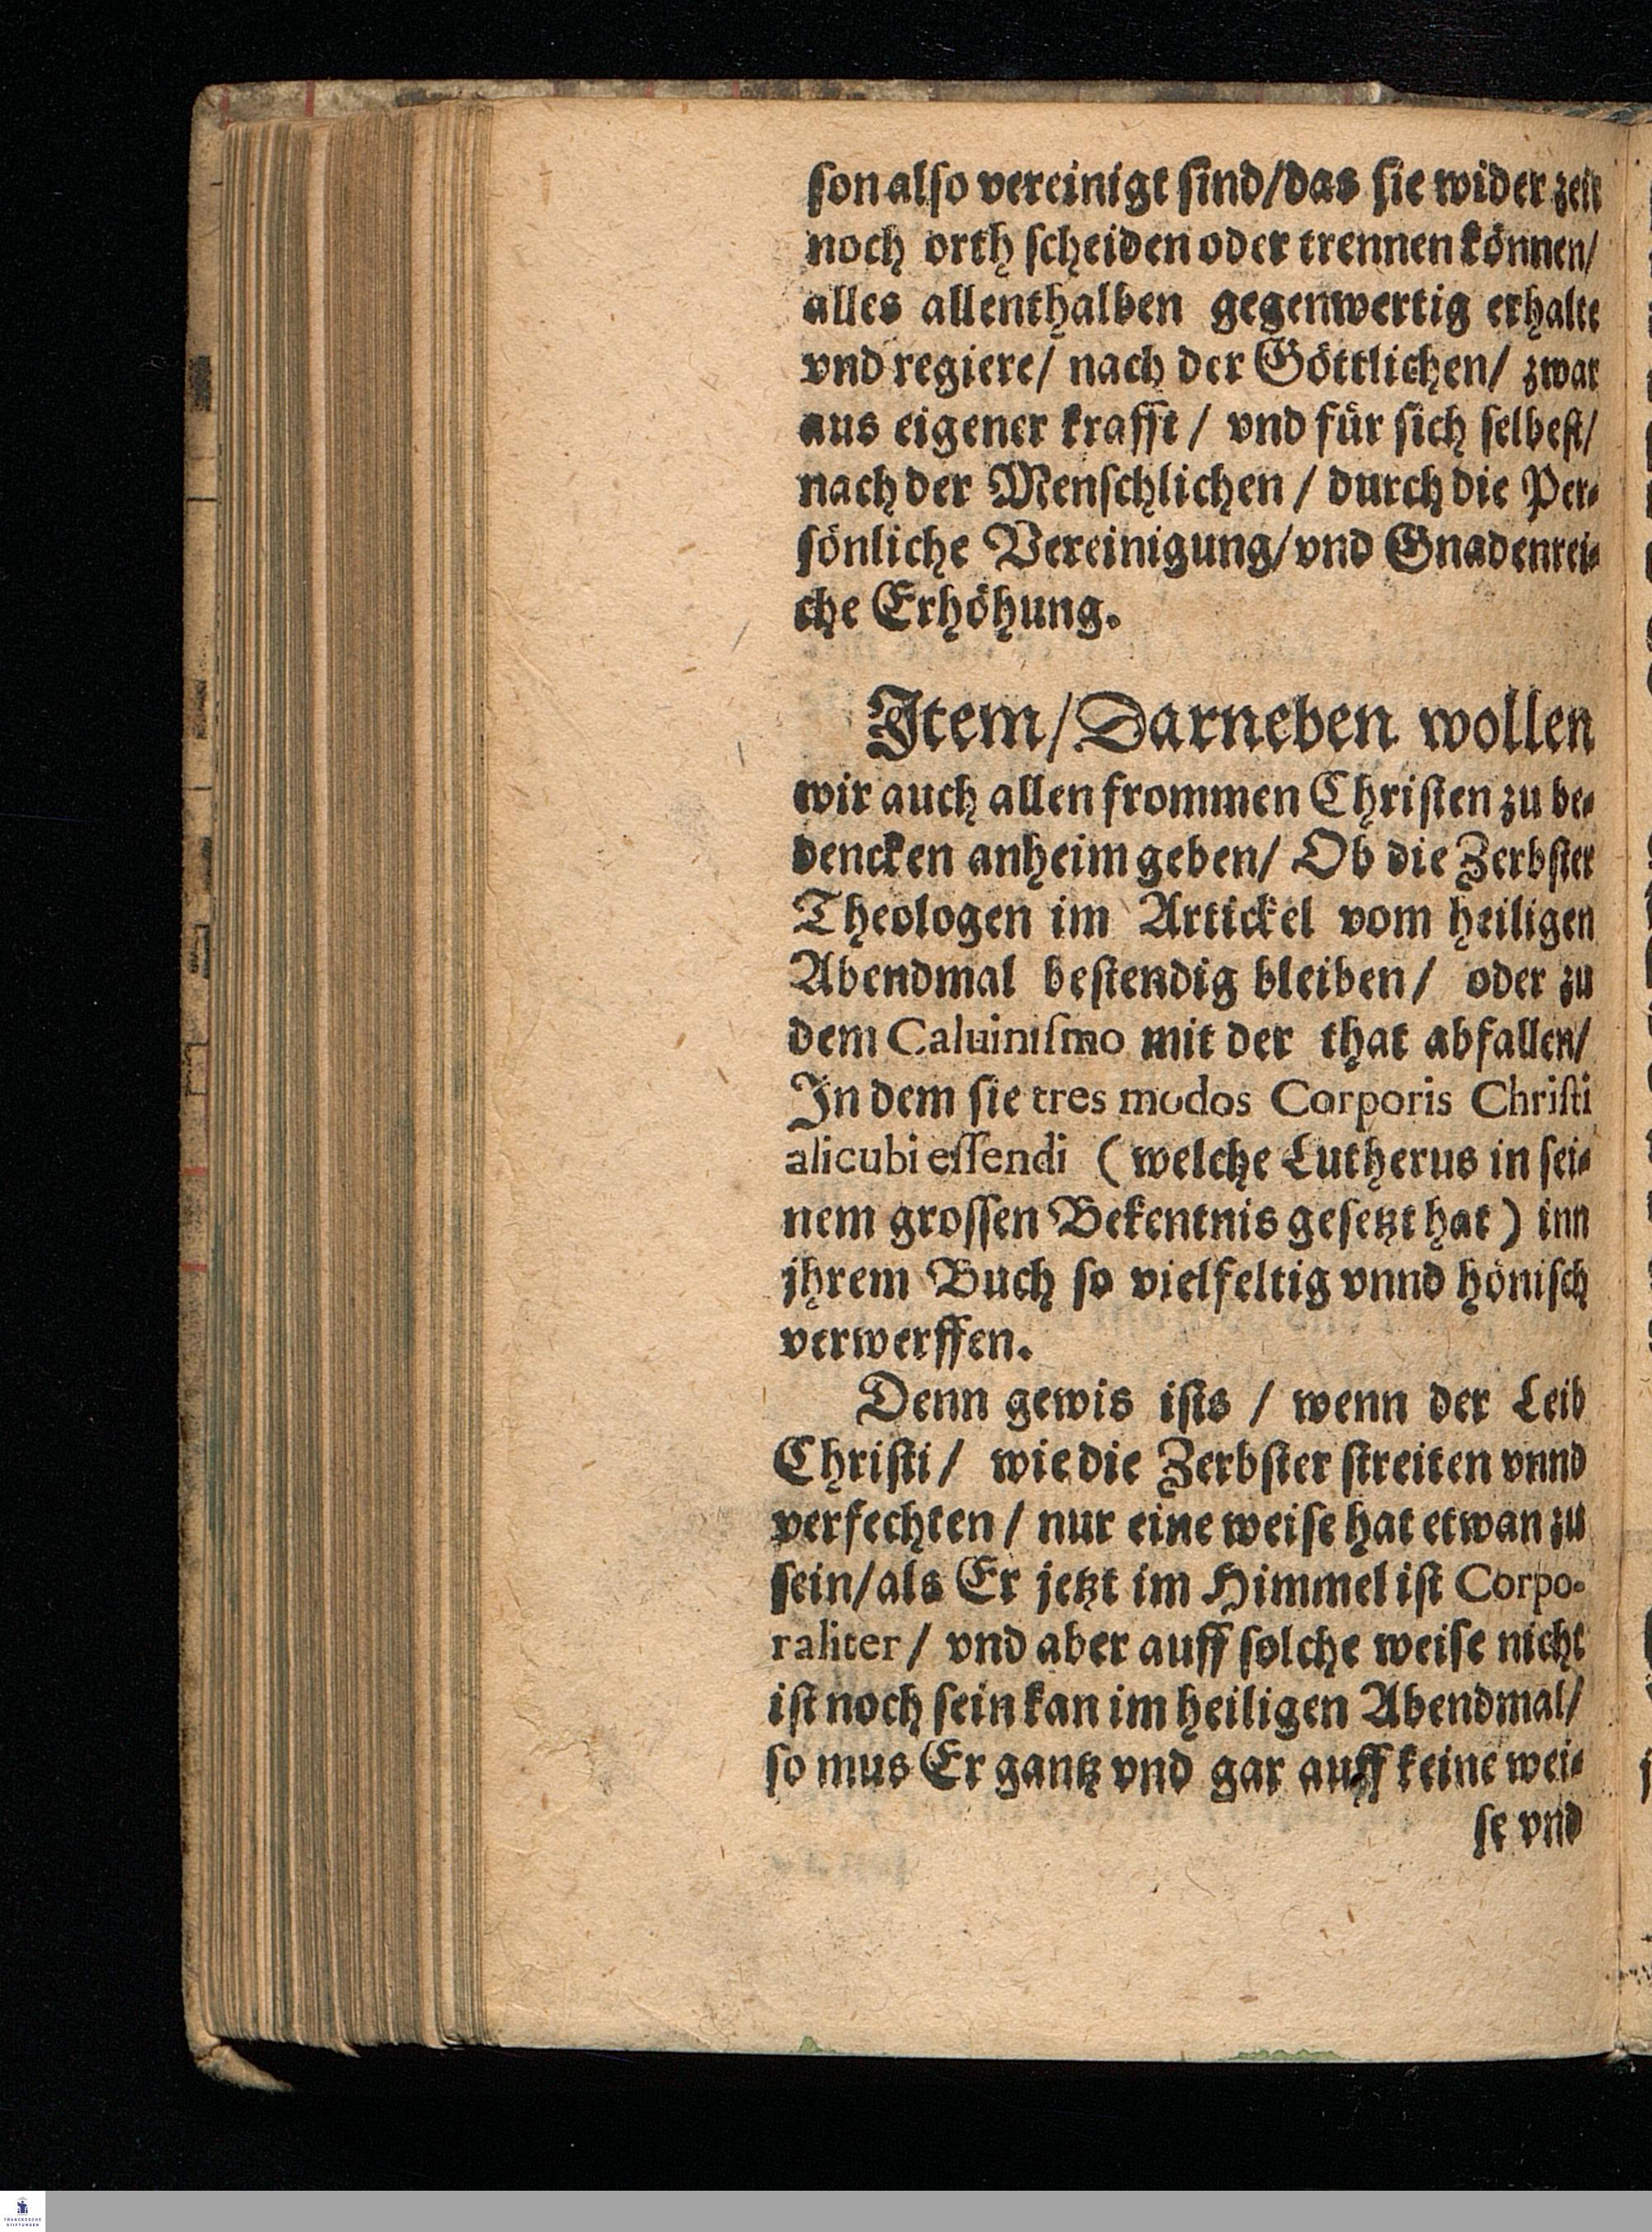 ſon alſo vereinigt ſind/das ſie wider zeit
noch orth ſcheiden oder trennen können/
alles allenthalben gegenwertig erhalte
vnd regiere/ nach der Göttlichen/ zwar
aus eigener krafft / vnd für ſich ſelbeſt/
nach der Menſchlichen / durch die Per⸗
ſönliche Vereinigung/vnd Gnadenrei⸗
che Erhöhung.
Item/Darneben wollen
wir auch allen frommen Chriſten zu be⸗
dencken anheim geben/ Ob die Zerbſter
Theologen im Artickel vom heiligen
Abendmal beſtendig bleiben/ oder zu
dem Caluiniſmo mit der that abfallen/
In dem ſie tres modos Corporis Chriſti
alicubi eſſendi (welche Lutherus in ſei⸗
nem groſſen Bekentnis geſetzt hat) inn
jhrem Buch ſo vielfeltig vnnd höniſch
verwerffen.
Denn gewis iſts / wenn der Leib
Chriſti/ wie die Zerbſter ſtreiten vnnd
verfechten / nur eine weiſe hat etwan zu
ſein/als Er jetzt im Himmel iſt Corpo⸗
raliter / vnd aber auff ſolche weiſe nicht
iſt noch ſein kan im heiligen Abendmal/
ſo mus Er gantz vnd gar auff keine wei⸗
ſe vnd
FRANCKESCHE
STIFTUNGEN